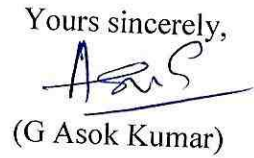 Yours sincerely,
(G Asok Kumar)